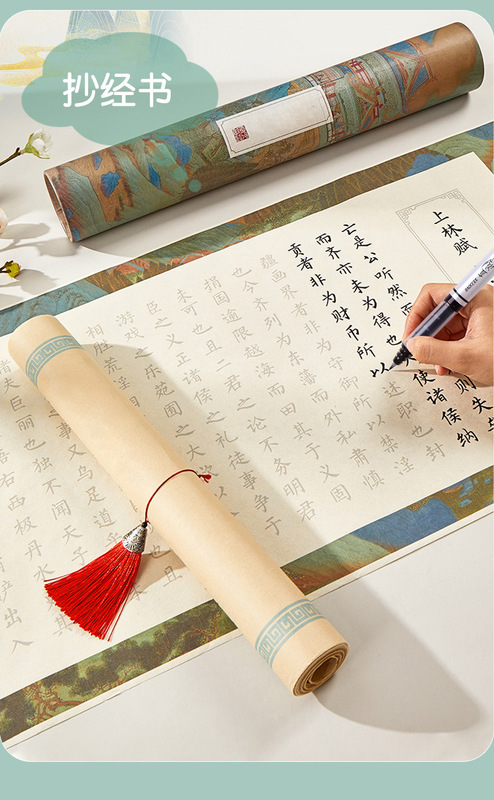 抄经书
上林赋
亡是公听然则失
而齐亦未为得也使诸侯纳
贡者非为财币所以述职也封
疆画界者非为守御所以禁淫
也今齐列为东藩而外私肃慎
捐国逾限越海而田其于义固
未可也且二君之论不务明
臣之义正诸侯之礼徒事争于
游戏之乐苑囿之大以
相胜荒淫且
之事又乌足道其
夫巨丽也独不闻天子
右西极丹水
浐出入